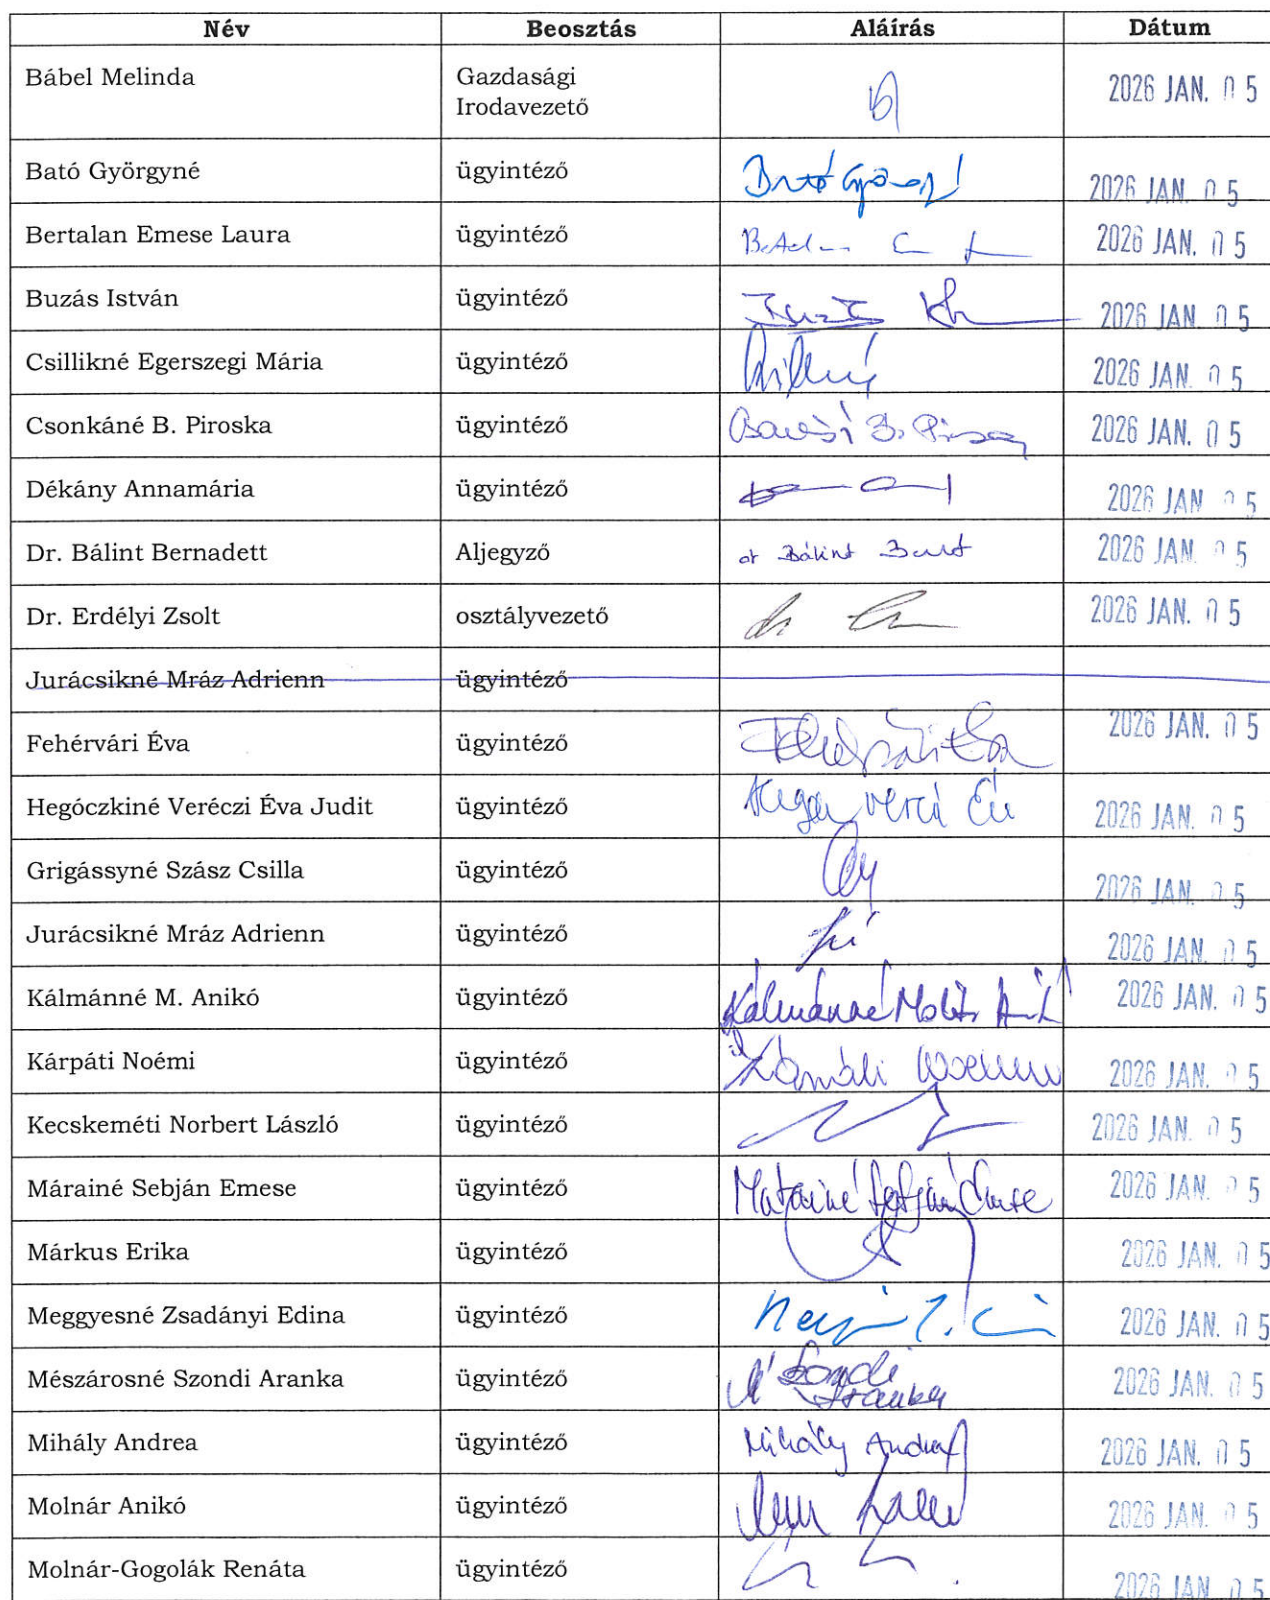 Név Beosztás Aláírás Dátum
Bábel Melinda Gazdasági 2026 JAN. 05
Irodavezető
Bató Györgyné ügyintéző Bató Györgyné 2026 JAN. 05
Bertalan Emese Laura ügyintéző 2026 JAN. 05
Buzás István ügyintéző 2026 JAN. 05
Csillikné Egerszegi Mária ügyintéző 2026 JAN. 05
Csonkáné B. Piroska ügyintéző B. Piroska 2026 JAN. 05
Dékány Annamária ügyintéző 2026 JAN 05
Dr. Bálint Bernadett Aljegyző dr Bálint Bern 2026 JAN. 05
Dr. Erdélyi Zsolt osztályvezető dr 2026 JAN. 05
Jurácsikné Mráz Adrienn ügyintéző
Fehérvári Éva ügyintéző Fehérvári Éva 2026 JAN. 05
Hegóczkiné Veréczi Éva Judit ügyintéző 2026 JAN. 05
Grigássyné Szász Csilla ügyintéző 2026 JAN. 05
Jurácsikné Mráz Adrienn ügyintéző 2026 JAN. 05
Kálmánné M. Anikó ügyintéző Kálmánné 2026 JAN. 05
Kárpáti Noémi ügyintéző 2026 JAN. 05
Kecskeméti Norbert László ügyintéző 2026 JAN. 05
Márainé Sebján Emese ügyintéző Márainé Sebján Emese 2026 JAN. 05
Márkus Erika ügyintéző 2026 JAN. 05
Meggyesné Zsadányi Edina ügyintéző 2026 JAN. 05
Mészárosné Szondi Aranka ügyintéző M Szondi 2026 JAN. 05
Aranka
Mihály Andrea ügyintéző Mihály Andrea 2026 JAN. 05
Molnár Anikó ügyintéző 2026 JAN. 05
Molnár-Gogolák Renáta ügyintéző 2026 JAN. 05